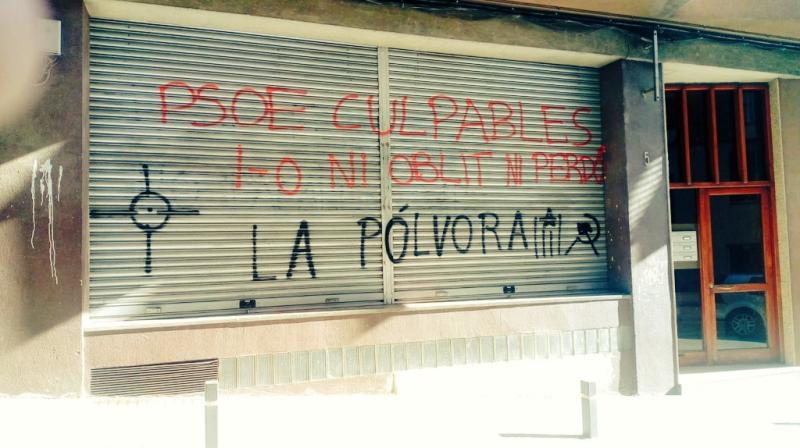 PSOE CULPABLES
1-O NI OBLIT NI PERDÓ
LA PÓLVORA
5